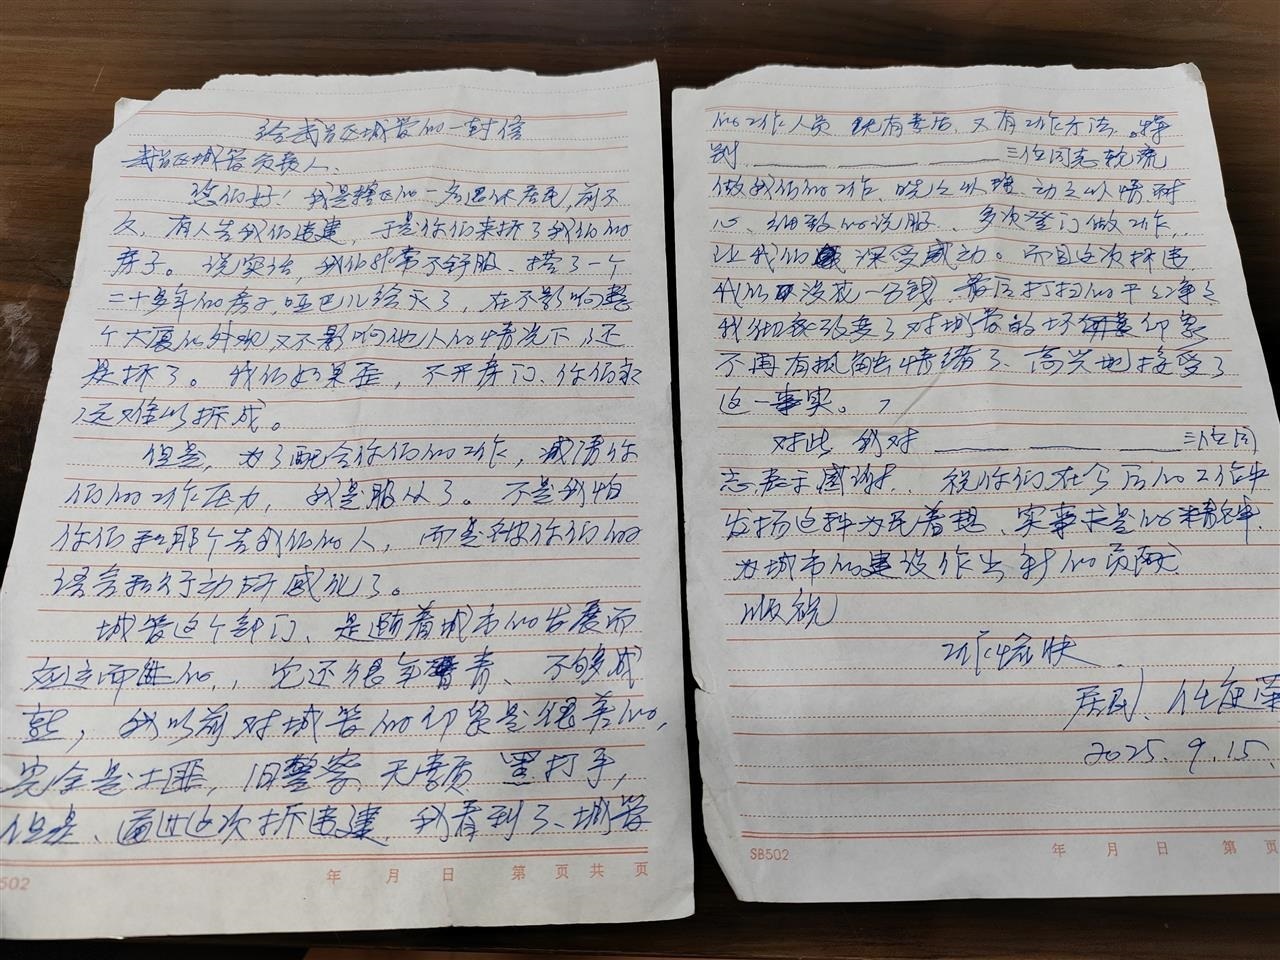 给武昌区城管的一封信
武昌区城管负责人、
您们好！我是辖区的一名退休居民，前不
久，有人告我们违建，于是你们来拆了我们的
房子。说实话，我们非常不舒服、搭了一个
二十多年的房子，哑巴儿给灭了，在不影响整
个大厦的外观，又不影响他人的情况下，还
是拆了。我们如果歪，不开房门、你们永
远难以拆成。
但是，为了配合你们的工作，减清你
们的工作压力，我是服从了。不是我怕
你们和那个告我们的人，而是被你们的
语言和行动所感化了。
城管这个部门、是随着城市的发展而
应运而生的，它还很年青、不够成
熟，我以前对城管的印象是很差的，
完全是土匪，旧警察、无素质 黑打手，
但是、通过这次拆违建，我看到了、城管
的工作人员 既有素质、又有工作方法。特
别 三位同志轮流
做我们的工作、晓之以理、动之以情、耐
心、细致的说服、多次登门做工作、
让我们深受感动。而且这次拆违、
我们没花一分钱、最后打扫的干干净净
我彻底改变了对城管的坏印象
不再有抵触情绪了、高兴地接受了
这一事实。
对此 我对 三位同
志表示感谢，祝你们在今后的工作中
发扬这种为民着想、实事求是的精神、
为城市的建设作出新的贡献
顺祝
工作愉快
居民、任
2025.9.15.
502 年 月 日 第 页 共 页
SB502 年 月 日 第 页